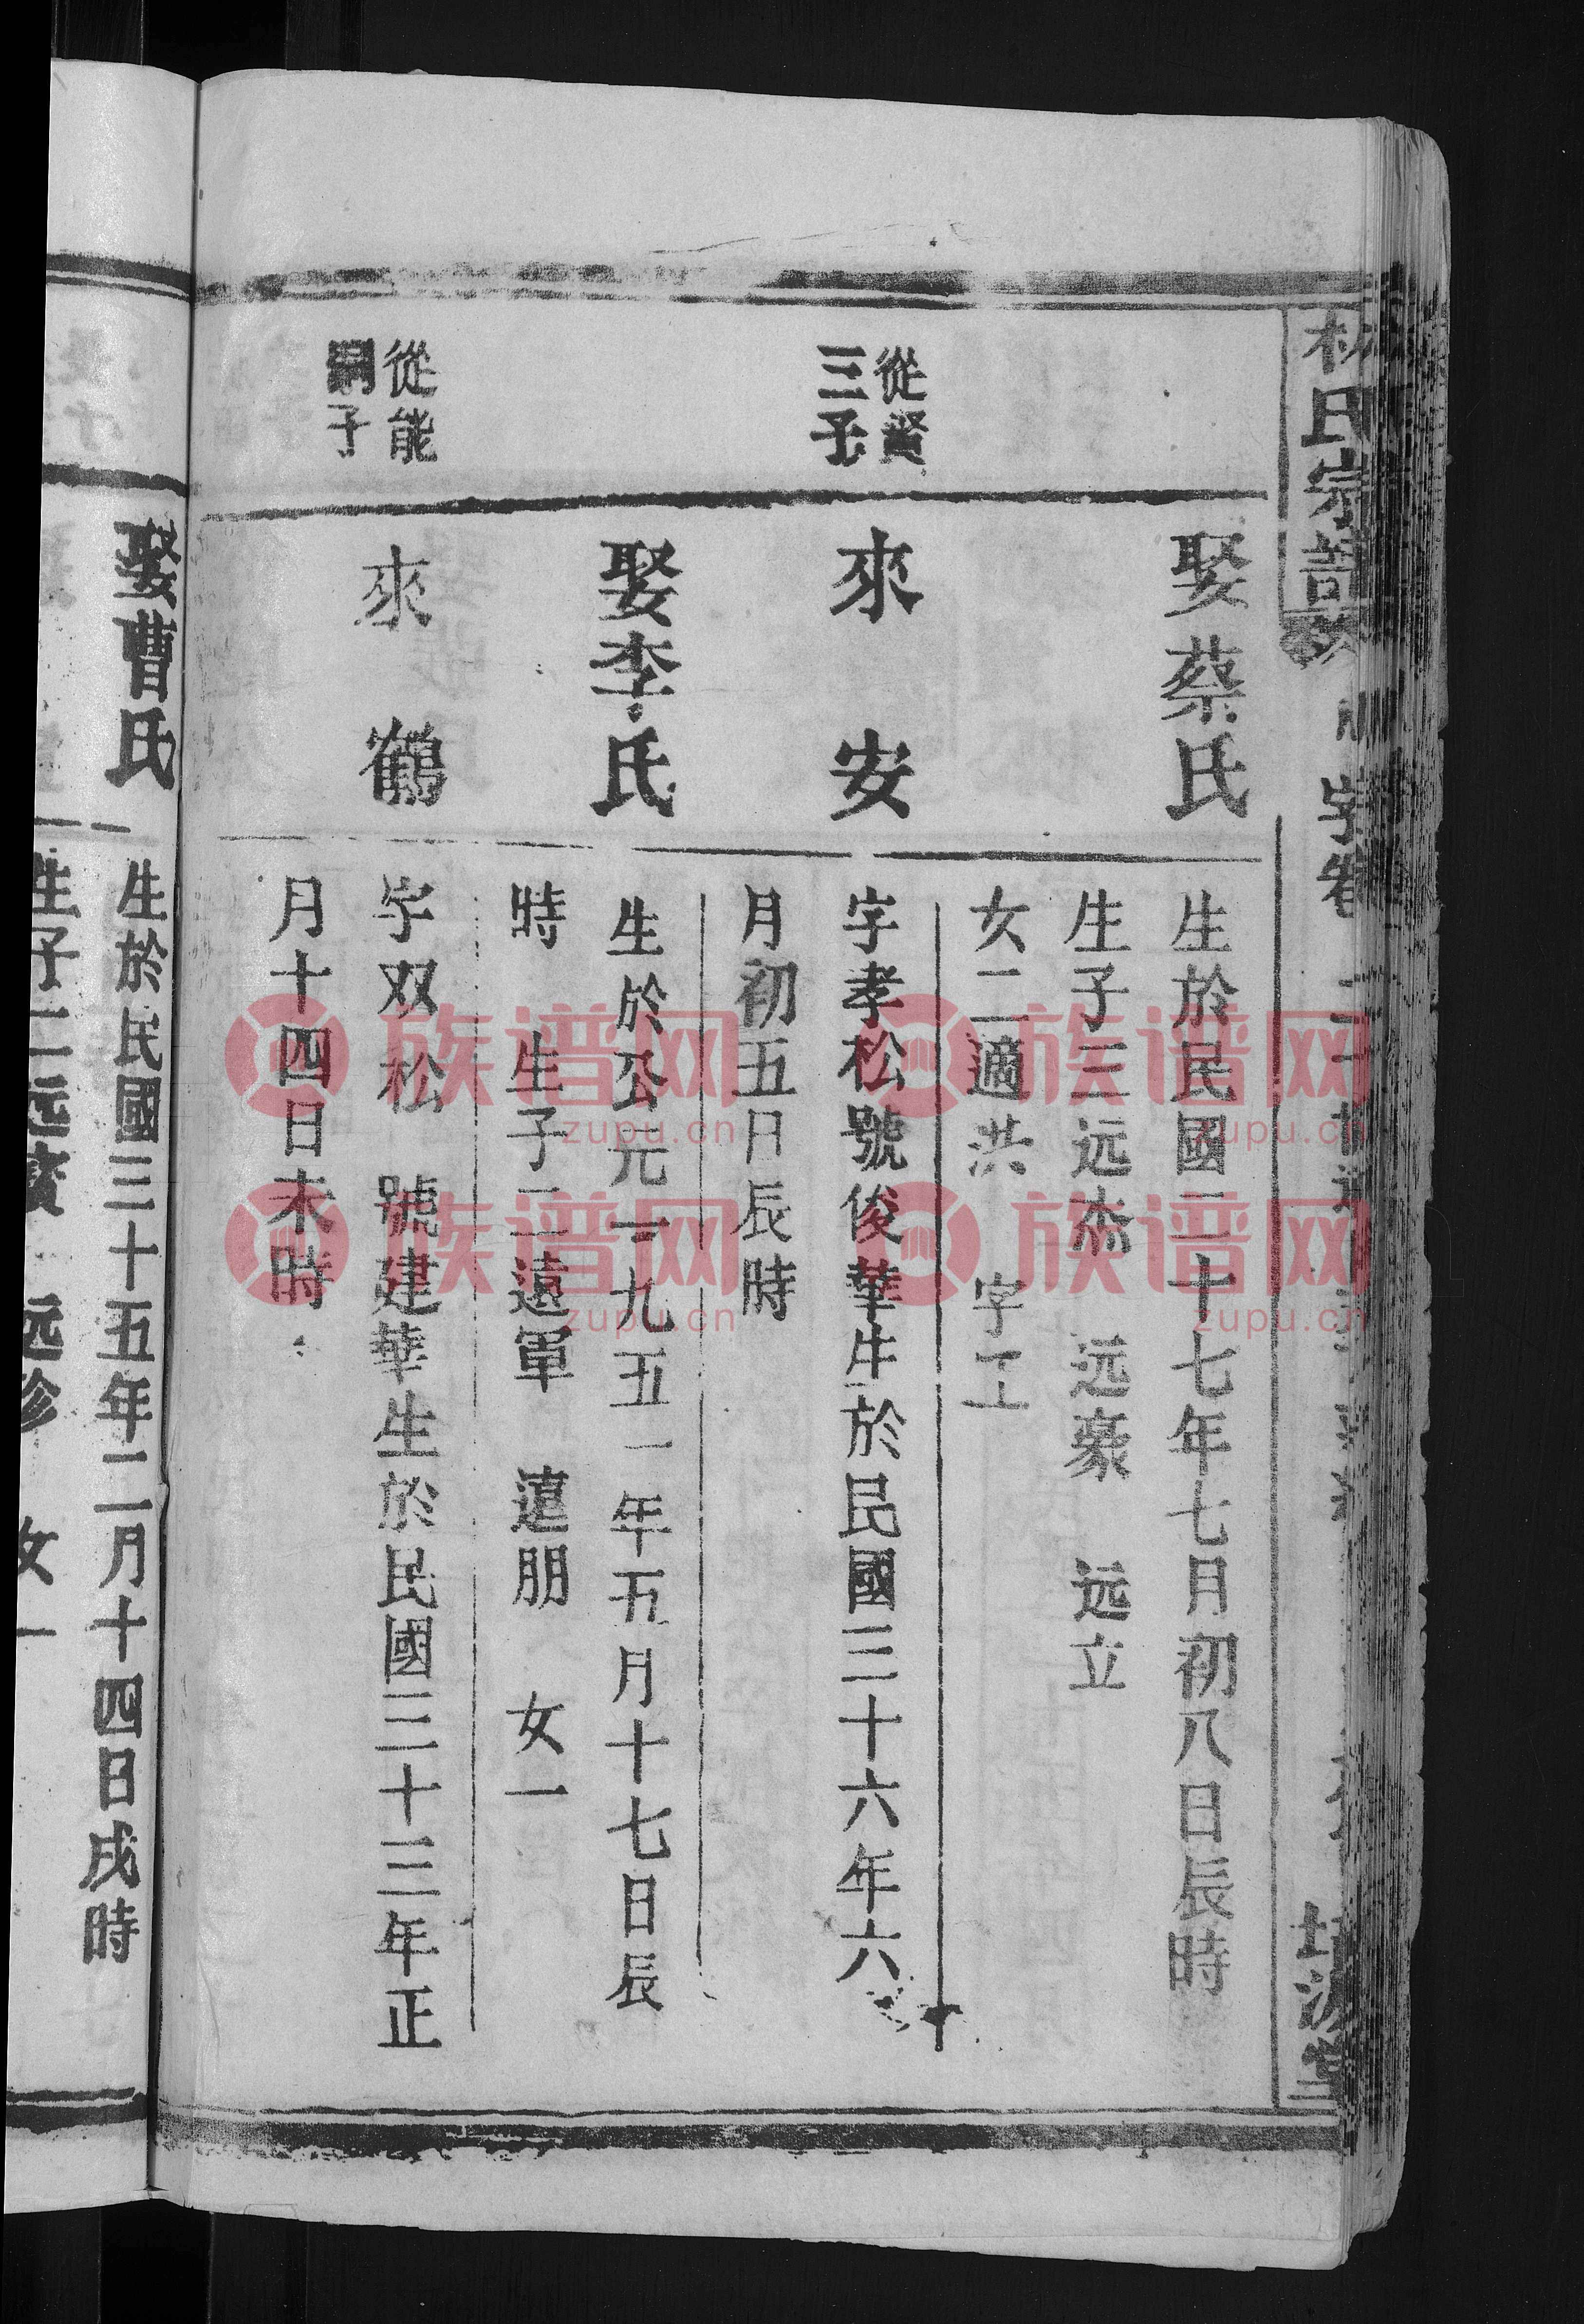 氏宗譜
娶蔡氏
生於民國二十七年七月初八日辰時
生子三远杰　远豪　远立
女二適洪　字工
從賢
三子
來安
字孝松號俊華生於民國三十六年六
月初五日辰時
娶李氏
生於公元一九五一年五月十七日辰
時　生子二遠軍　遠朋　女一
從能
子
來鶴
字双松　號建華生於民國三十三年正
月十四日未時
娶曹氏
生於民國三十五年二月十四日戌時
生子二远寶　远珍　女一
族谱网
zupu.cn
族谱网
zupu.cn
族谱网
zupu.cn
族谱网
zupu.cn